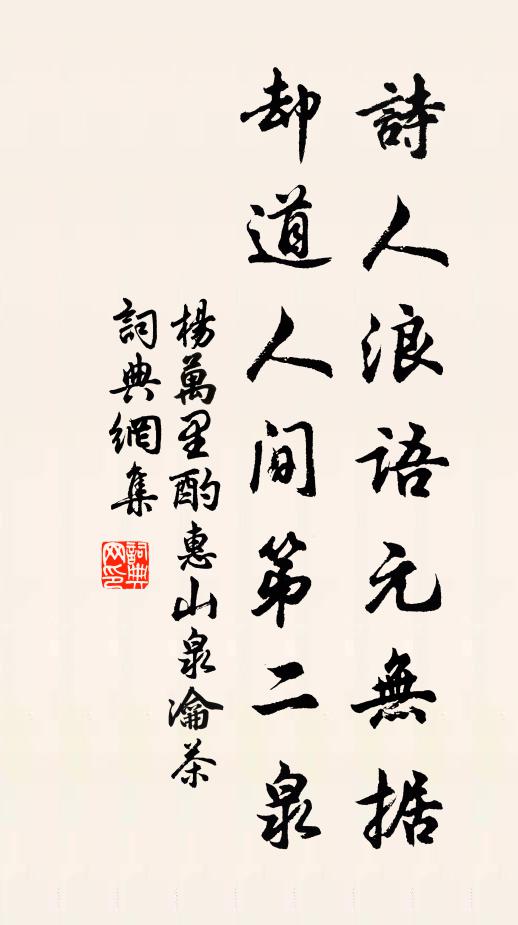 詩人浪語元無据
却道人间第二泉
楊萬里酌惠山泉瀹茶
詞典網集
詞典网印